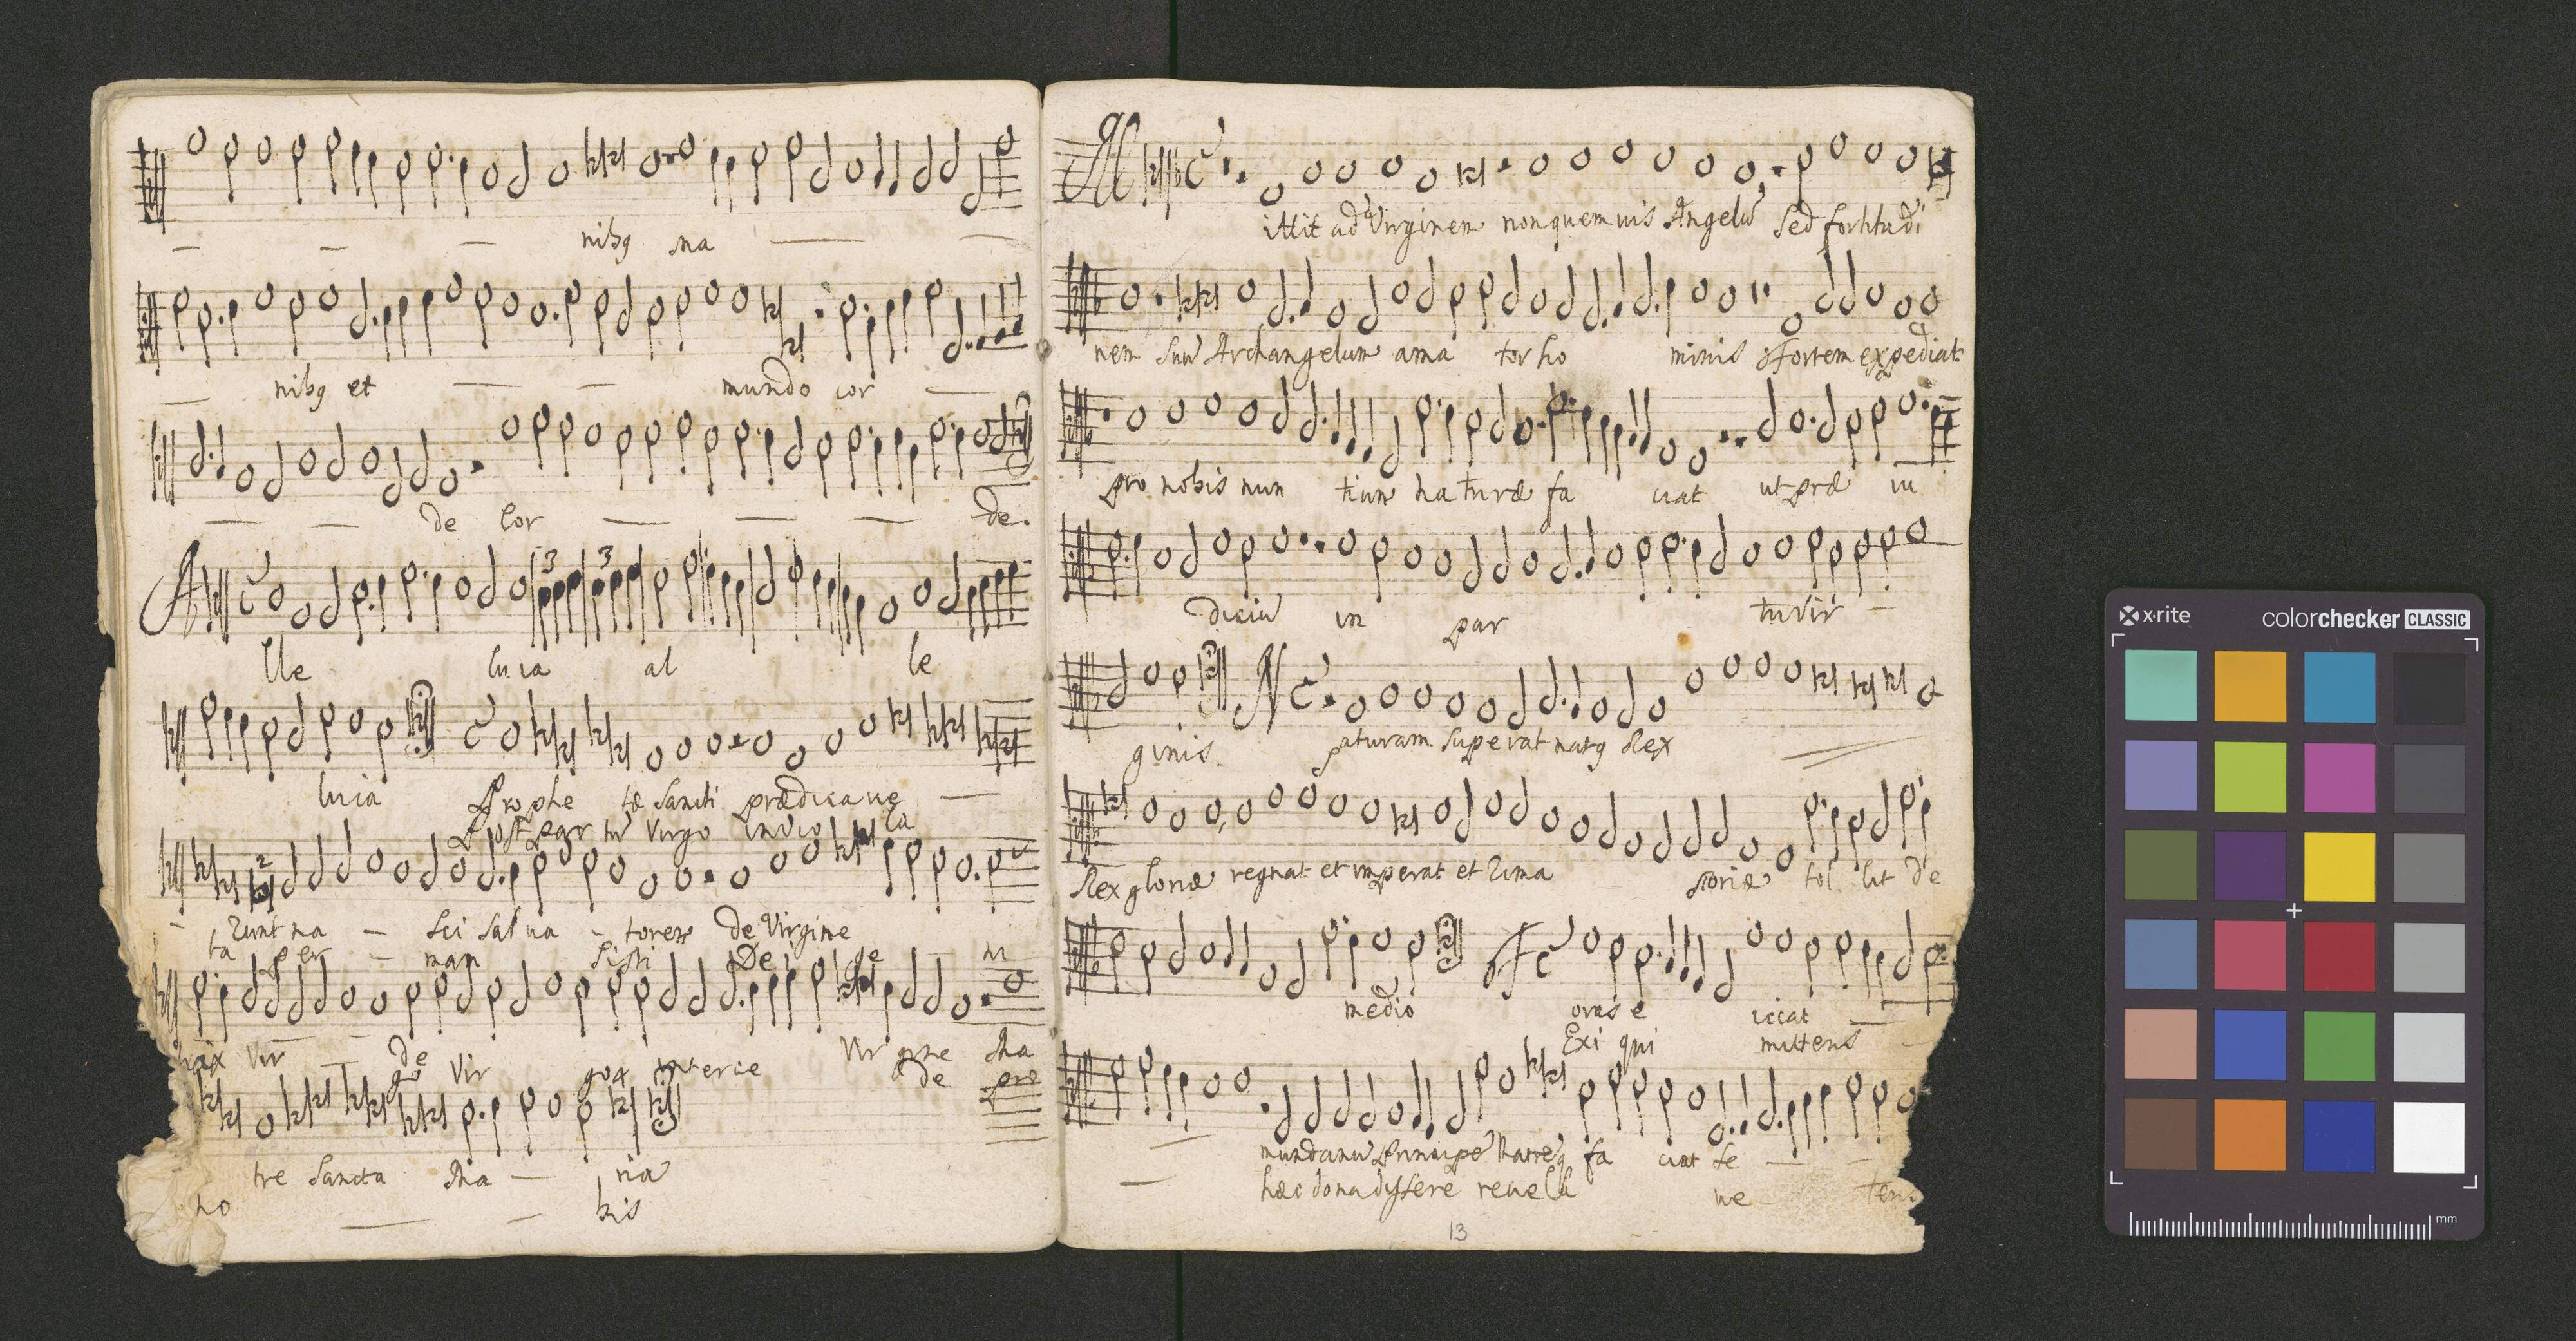 nibꝯ ma
nibꝯ et mundo cor
de Cor de.
3 3
Alle luia al le
luia Prophe tæ Sancti prædicaue
Post par tũ Virgo inuio la
2
runt na sci Salua torem de Virgine
ta per man sisti De ge ni
Vir de Virgine Ma
trix go Vir goq interce de pro
tre Sancta Ma ria
no bis
Mittit ad Virginem non quemuis Angelũ Sed fortitudi
nem suũ Archangelum ama tor ho minis Fortem expediat
pro nobis nun tium naturæ fa ciat ut præ iu
diciũ in par tu Vir
ginis. Naturam superat natꝯ Rex
Rex gloriæ regnat et imperat et Zima scoriæ tol lit de
medio Foras e iiciat
Exi qui mittens
mundanũ Principẽ Matreq fa ciat se
hæc dona dissere reuela ue teru
13
x·rite colorchecker CLASSIC
mm